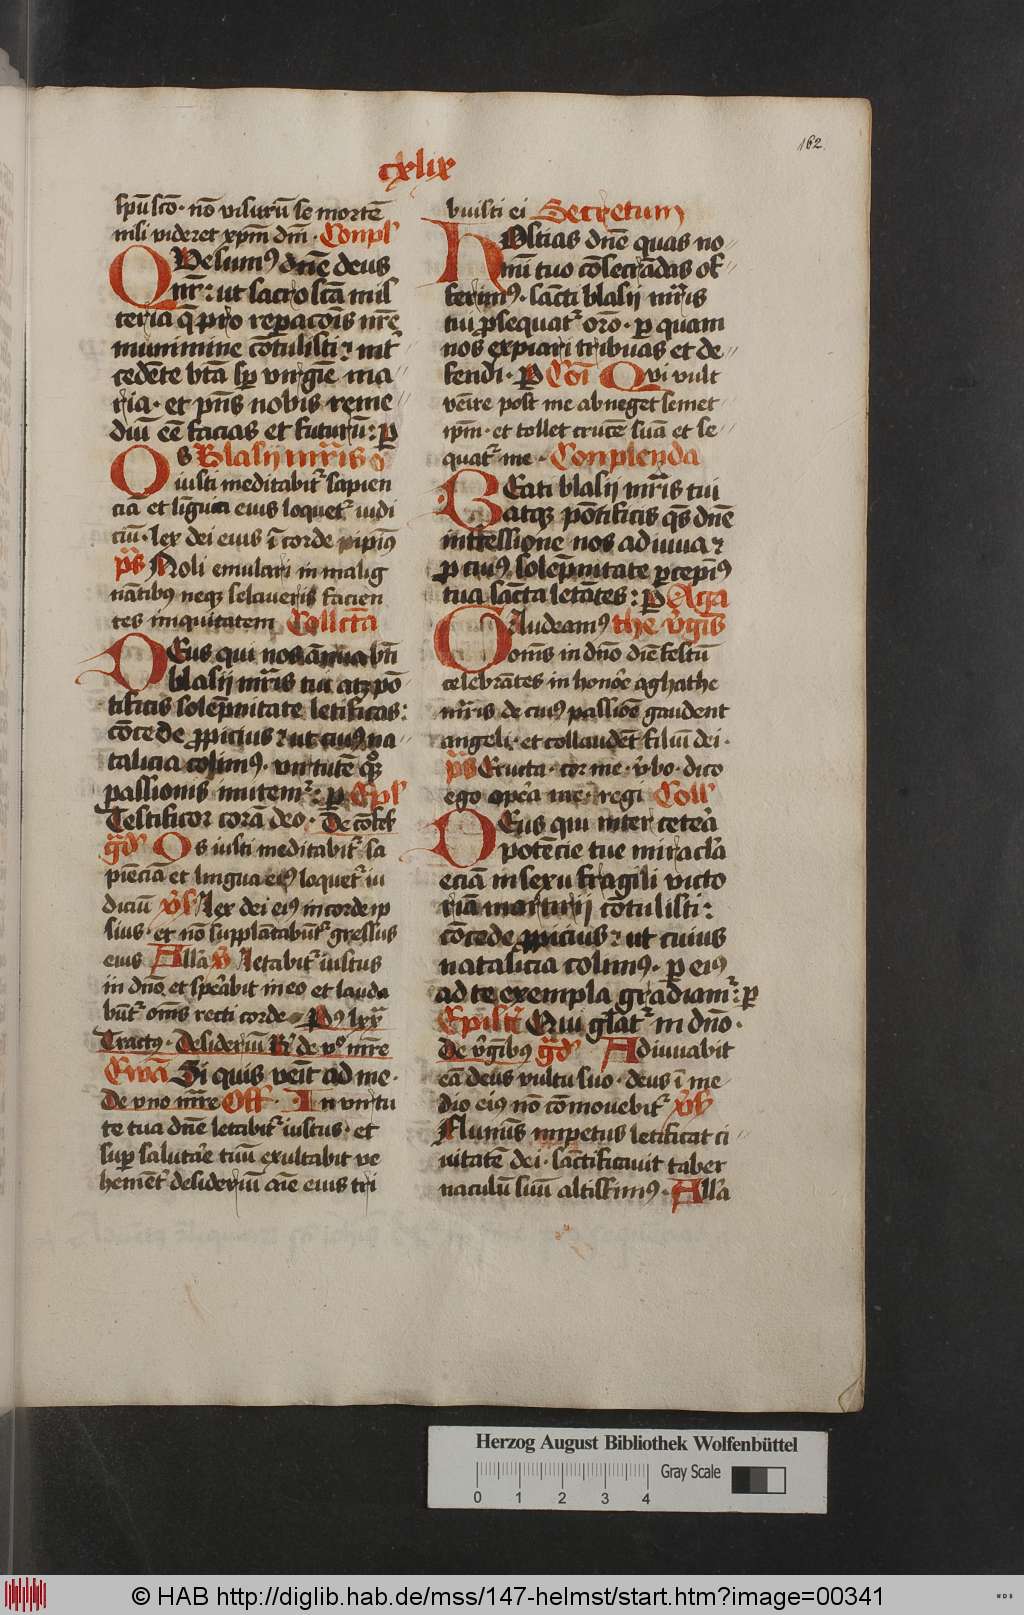 162
cxlix
spū scō · nō visurū se mortē
nisi videret xpm̄ dm̄ · Conpl'
QVesum⁹ dn̄e deus
nr̄ : ut sacrosc̄a mis
teria q̄ pro rep̄acōis nr̄e
munimine cōtulisti ⁊ int̕
cedēte bt̄a sp̄ virgīe ma
ria · et pn̄s nobis reme
diū eē facias et futurū : p̲
OS Blasij mr̄is
iusti meditabit᷑ sapien
ciā et līgua eius loquet᷑ iudi
ciū · lex dei eius ī corde ipiⁿ⁹
p̄s Noli emulari in malig
nātib⁹ neqꝫ zelaveris facien
tes iniquitatem Collc̄ta
DEus qui nos ānua bt̄i
blasij mr̄is tui atqꝫ pō
tificis solēpnitate letificas :
cōcede p̄picius ⁊ ut cuiⁿ⁹ na
talicia colim⁹ · virtutē qꝫ
passionis imitem᷑ : p̲ Epl'
Testificor corā deo · De cōfes'
gͣd' Os iusti meditabit᷑ sa
piēciā et lingua ei⁹ loquet᷑ iu
diciū v̕s' Lex dei ei⁹ in corde ip
sius · et nō supplātabūt᷑ gressus
eius All'a v̕ Letabit᷑ iustus
in dn̄o et sp̲abit in eo et lauda
būt᷑ om̄s recti corde · P⁹ lxx͞
Tract⁹ · Desideriū R' de v⁰ mr̄e
Ewā Si quis veīt ad me ·
de vno mr̄e Off' · In virtu
te tua dn̄e letabit᷑ iustus · et
sup̲ saluta̕e tuū exultabit ve
hemēt̕ desideriū aīe eius tri
buisti ei Secretum
HOstias dn̄e quas no
mī tuo cōsecrādas of
ferim⁹ · sācti blasij mr̄is
tui p̲sequat᷑ oro̅ · p̲ quam
nos expiari tribuas et de
fendi · P̲ Cōi Qvi vult
venire post me abneget semet
ip̄m · et tollet crucē suā et se
quat᷑ me · Conplenda
BEati blasij mr̄is tui
atqꝫ pōtificis q̄s dn̄e
int̕cessione nos adiuua ⁊
p̲ cuiⁿ⁹ solēpnitate p̲cepi⁹
tua sācta letātes : P̲ Aga
GAudeam⁹ the v̕gīs
om̄s in dn̄o diē festū
celebrātes in hono̕e aghathe
mr̄is de cuiⁿ⁹ passiōe gaudent
angeli · et collaudēt filiū dei ·
p̄s Eructa · cor me · v̕bo · dico
ego ope̕a me · regi Coll'
DEus qui inter cete̕a
potēcie tue miracl'a
eciā in sexu fragili victo
riā martirij cōtulisti :
cōcede p̲picius ⁊ ut cuius
natalicia colim⁹ · p̲ ei⁹
ad te exempla grādiam᷑ : p̲
Epistl̄ Qui gl̄at᷑ in dn̄o ·
De v̕gībus gͣd' Adiuuabit
eā deus vultu suo · deus ī me
dio ei⁹ nō cōmovebit᷑ v̕s'
Fluminīs impetus letificat ci
vitatē dei · sāctificavit taber
naculū suū altissim⁹ · All'a
Herzog August Bibliothek Wolfenbüttel
Gray Scale
0 1 2 3 4
© HAB http://diglib.hab.de/mss/147-helmst/start.htm?image=00341